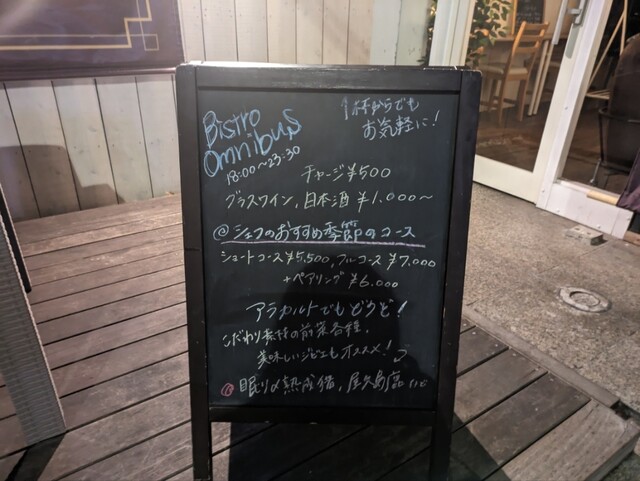 Bistro
Omnibus
18:00〜23:30
1杯からでも
お気軽に!
チャージ ¥500
グラスワイン、日本酒 ¥1,000〜
@シェフのおすすめ季節のコース
ショートコース¥5,500、フルコース ¥7,000
+ペアリング ¥6,000
アラカルトでもどうぞ!
こだわり素材の前菜各種、
美味しいジビエもオススメ!
熟成猪、屋久島鹿